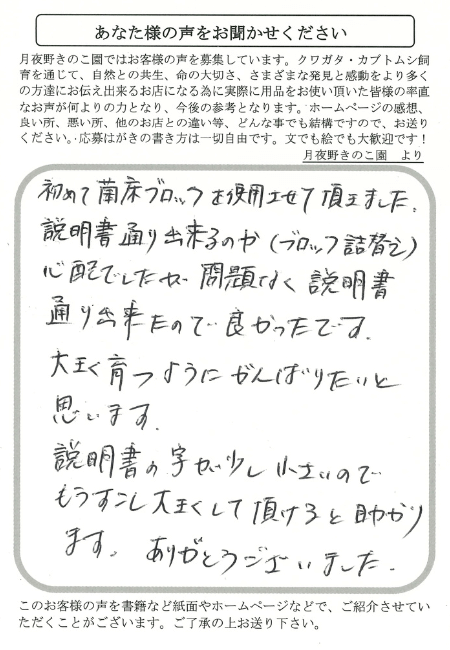 あなた様の声をお聞かせください
月夜野きのこ園ではお客様の声を募集しています。クワガタ・カブトムシ飼
育を通じて、自然との共生、命の大切さ、さまざまな発見と感動をより多く
の方達にお伝え出来るお店になる為に実際に用品をお使い頂いた皆様の率直
なお声が何よりの力となり、今後の参考となります。ホームページの感想、
良い所、悪い所、他のお店との違い等、どんな事でも結構ですので、お送り
ください。応募はがきの書き方は一切自由です。文でも絵でも大歓迎です！
月夜野きのこ園　より
初めて菌床ブロックを使用させて頂きました。
説明書通り出来るのか（ブロック詰替え）
心配でしたが、問題なく説明書
通り出来たので良かったです。
大きく育つようにがんばりたいと
思います。
説明書の字が少し小さいので
もうすこし大きくして頂けると助かり
ます。ありがとうございました。
このお客様の声を書籍など紙面やホームページなどで、ご紹介させてい
ただくことがございます。ご了承の上お送り下さい。